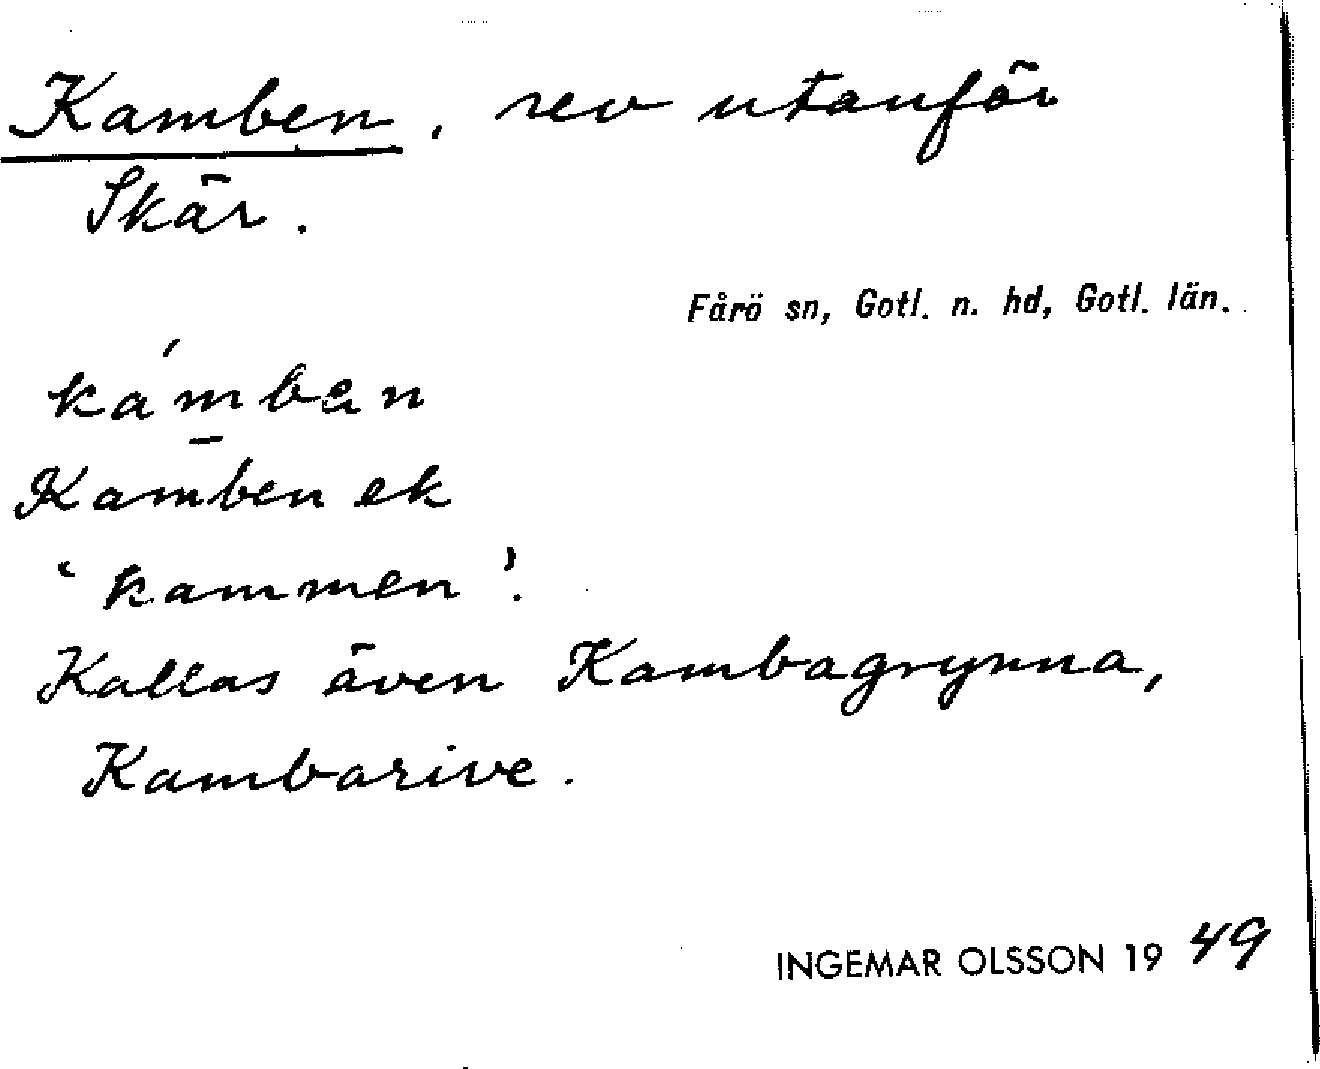 Kamben, rev utanför
Skär.
Fårö sn, Gotl. n. hd, Gotl. län.
ká m̱ben
Kamben ek
‘kammen’.
Kallas även Kambagrynna,
Kambarive.
INGEMAR OLSSON 1949